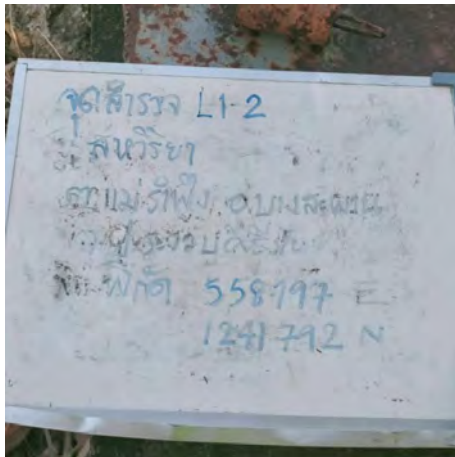 จุดสำรวจ L1-2
สหวิริยา
ต.แม่รำพึง อ.บางสะพาน
จ.ประจวบคีรีขันธ์
พิกัด 558797 E
1241792 N